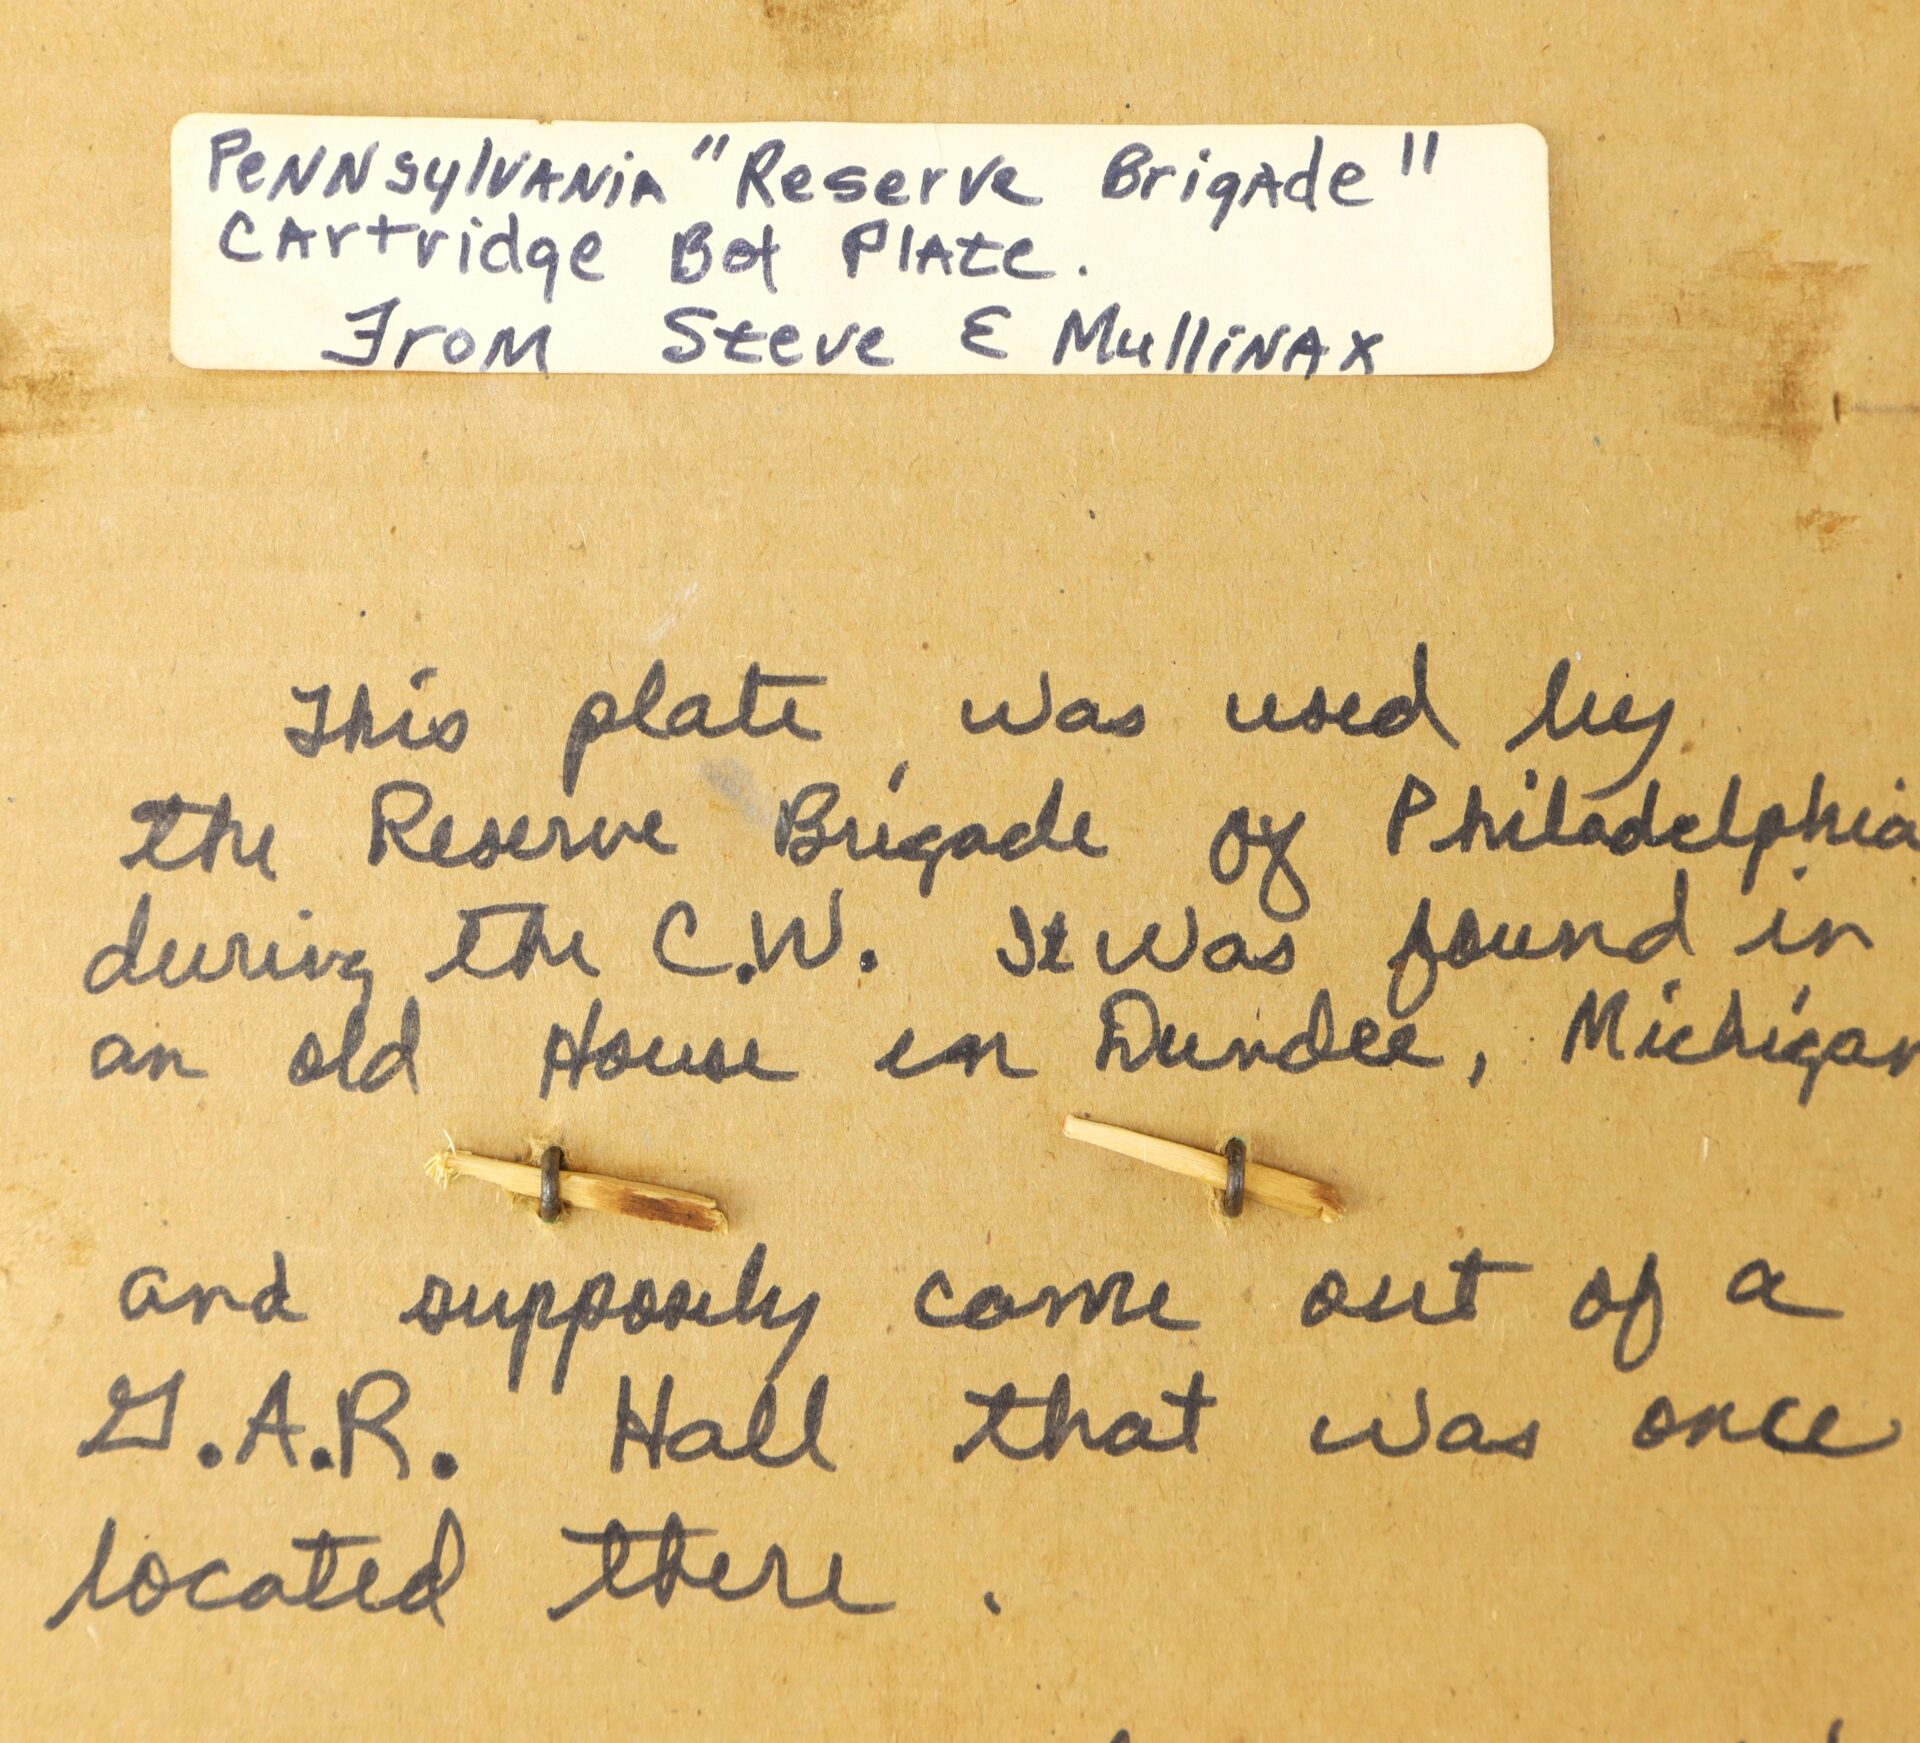 Pennsylvania "Reserve Brigade"
Cartridge Box Plate.
From Steve E Mullinax
This plate was used by
the Reserve Brigade of Philadelphia
during the C.W. It was found in
an old House in Dundee, Michigan
and supposely came out of a
G.A.R. Hall that was once
located there.